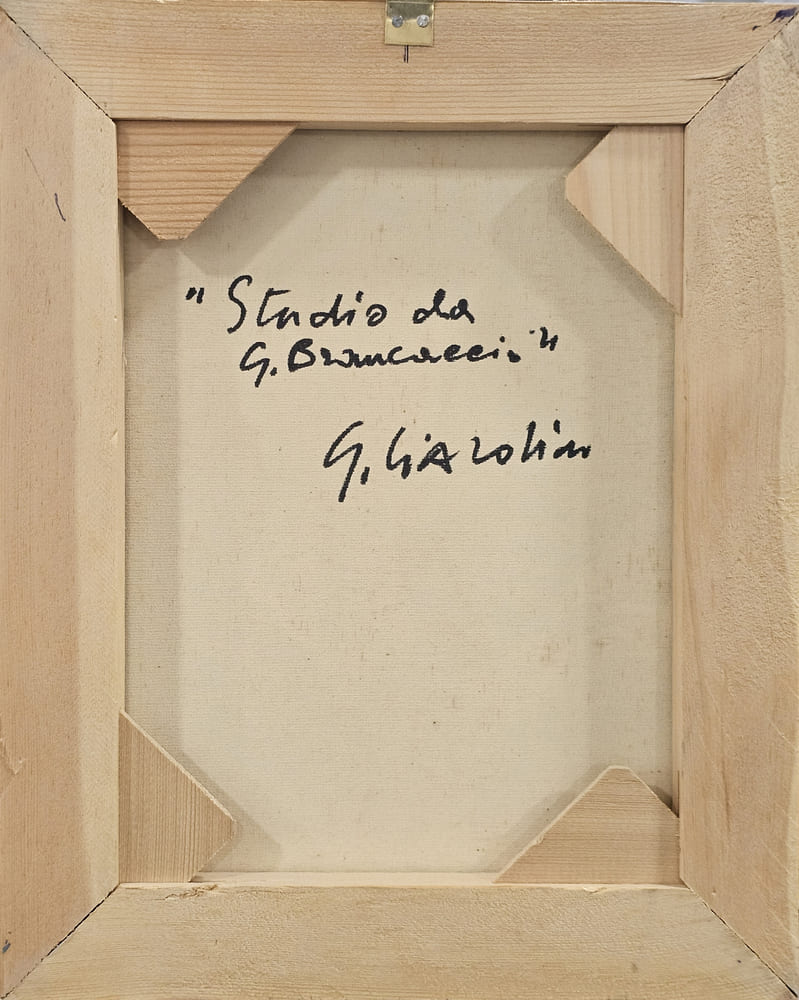 "Studio da
G. Brancaccio"
G. Giazolin